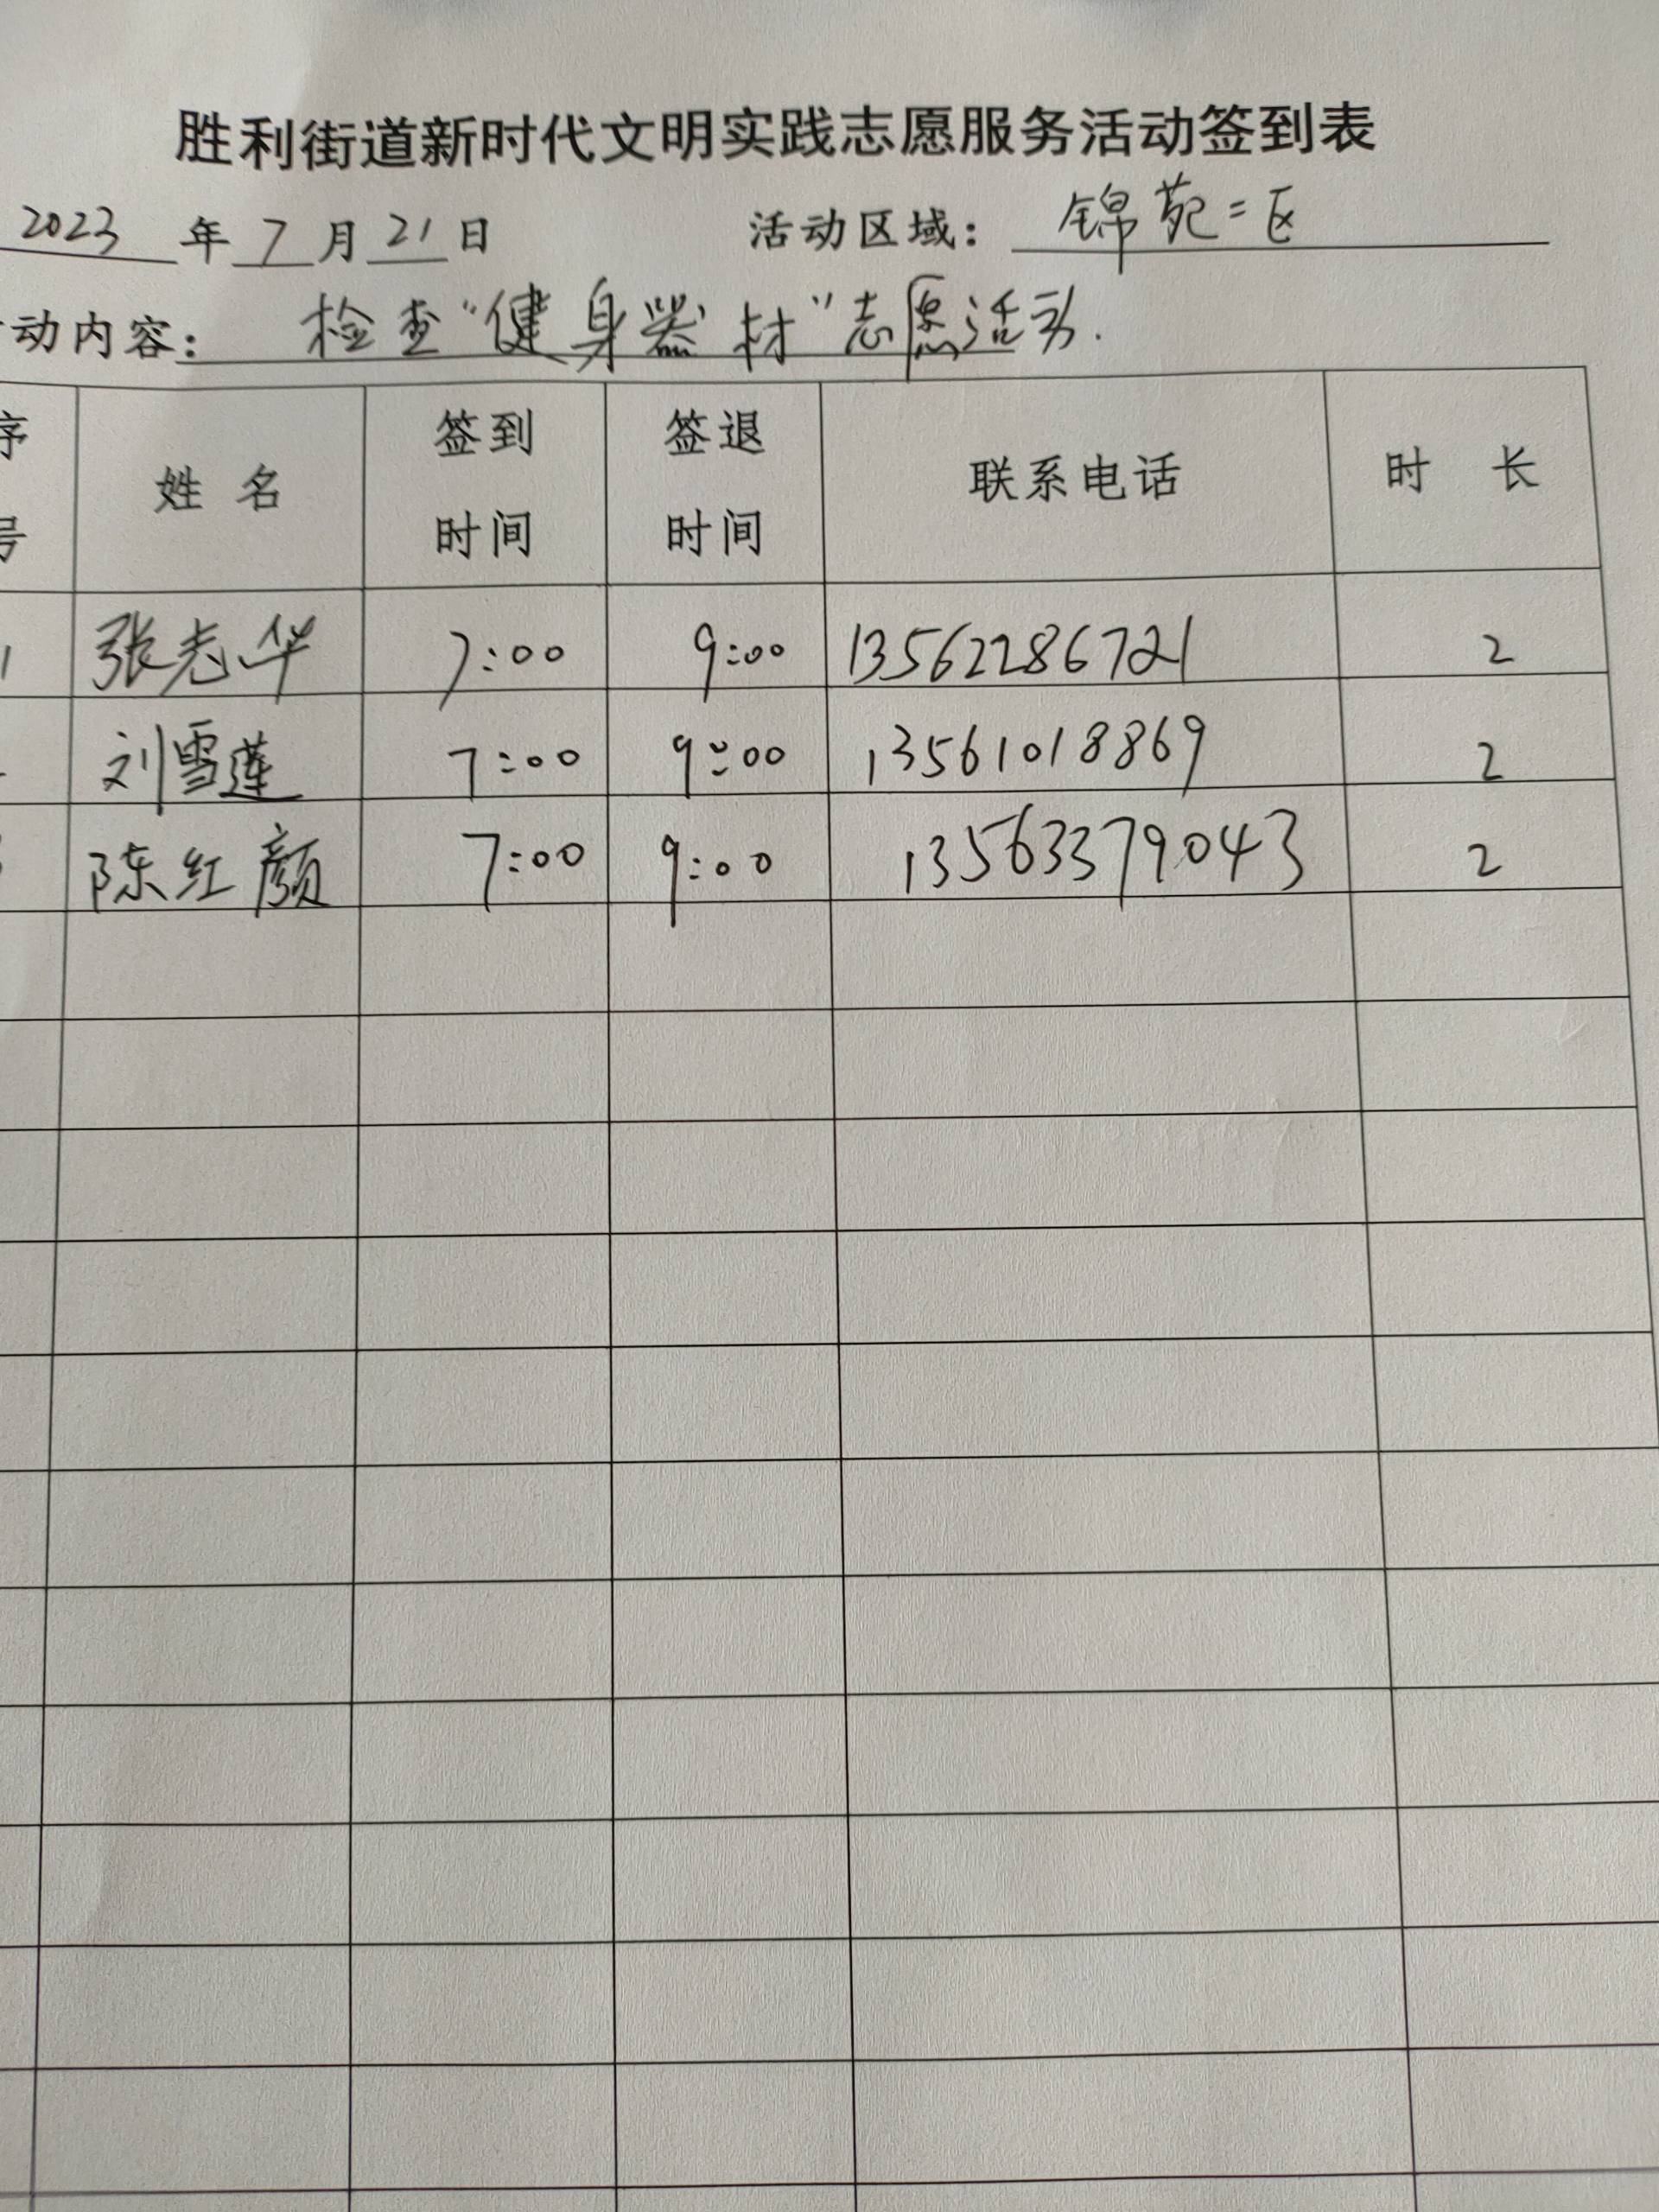 胜利街道新时代文明实践志愿服务活动签到表
2023 年 7 月 21 日 活动区域： 锦苑二区
动内容： 检查“健身器材”志愿活动.
序号 姓 名 签到时间 签退时间 联系电话 时 长
1 张志华 7:00 9:00 13562286721 2
刘雪莲 7:00 9:00 13561018869 2
陈红颜 7:00 9:00 13563379043 2